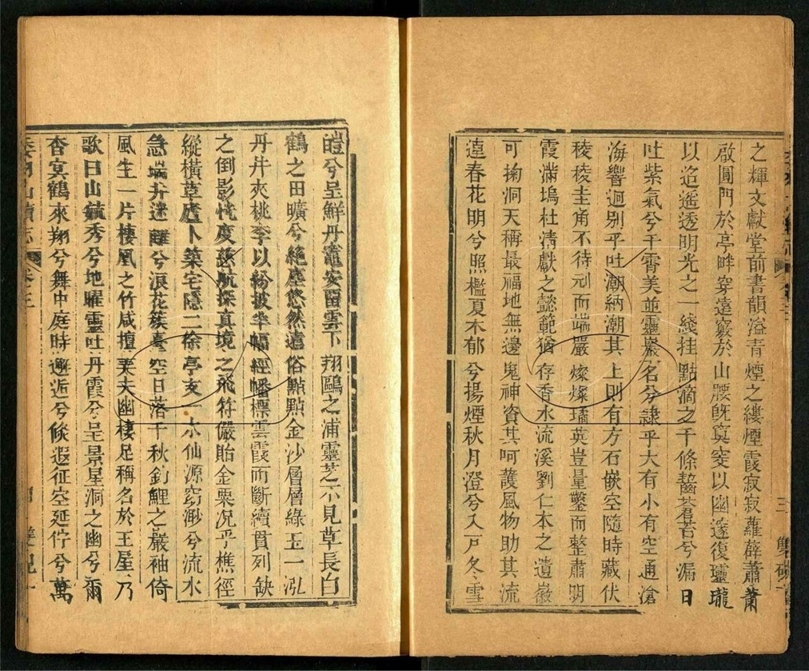 之輝文獻堂前書韻溢青煙之縷煙霞寂寂蘿薜蕭蕭
啟圓門於亭畔穿遠竅於山腰旣窈窕以幽邃復瓏
以迢遙透明光之一綫挂點滴之千條豁蒼苔兮漏日
吐紫氣兮干霄美並靈巖名兮隷乎大有小有空通滄
海響迥別乎吐潮納潮其上則有方石嵌空隨時藏伏
稜稜圭角不待刓而端嚴燦燦璚英豈量鑿而整肅明
霞滿塢杜清獻之懿範猶存香水流溪劉仁本之遺徽
可掬洞天稱最福地無邊鬼神資其呵護風物助其流
遠春花明兮照檻夏木郁兮揚煙秋月澄兮入戸冬雪
皚兮呈鮮丹竈安畱雲下翔鷗之浦靈芝不見草長白
鶴之田曠兮絶塵悠然遣俗點點金沙層層綠玉一泓
丹井夾桃李以紛披半幅經幡標雲霞而斷續貫列缺
之倒影恍度慈航探真境之飛符儼貽金粟況乎樵徑
縱橫草廬卜築宅隱二徐亭支一木仙源窈渺兮流水
急端井迷離兮浪花簇臺空日落千秋釣鯉之巖袖倚
風生一片棲鳳之竹咸擅美夫幽棲足稱名於王屋乃
歌曰山毓秀兮地曜靈吐丹霞兮呈景星洞之幽兮爾
杳冥鶴來翔兮舞中庭時邂逅兮倏遐征空延佇兮萬
委羽山續志 卷三